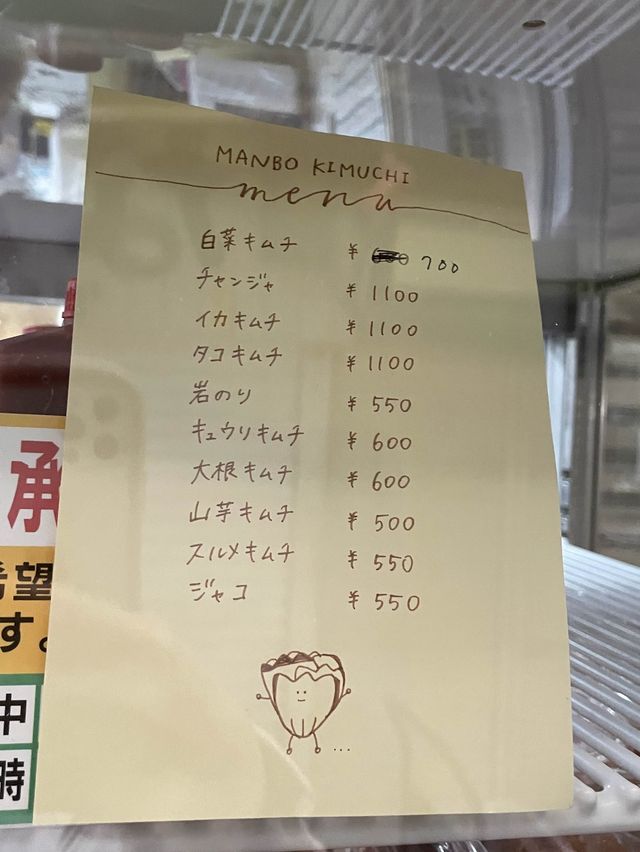 MANBO KIMUCHI
menu
白菜キムチ ¥ 700
チャンジャ ¥ 1100
イカキムチ ¥ 1100
タコキムチ ¥ 1100
岩のり ¥ 550
キュウリキムチ ¥ 600
大根キムチ ¥ 600
山芋キムチ ¥ 500
スルメキムチ ¥ 550
ジャコ ¥ 550
...
承
希望
す。
中
時